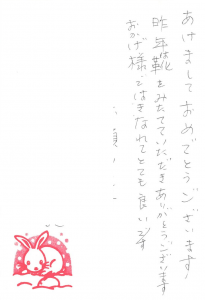 あけましておめでとうございます!
昨年靴をみたてていただきありがとうございます
おかげ様ではきなれてとても良いです